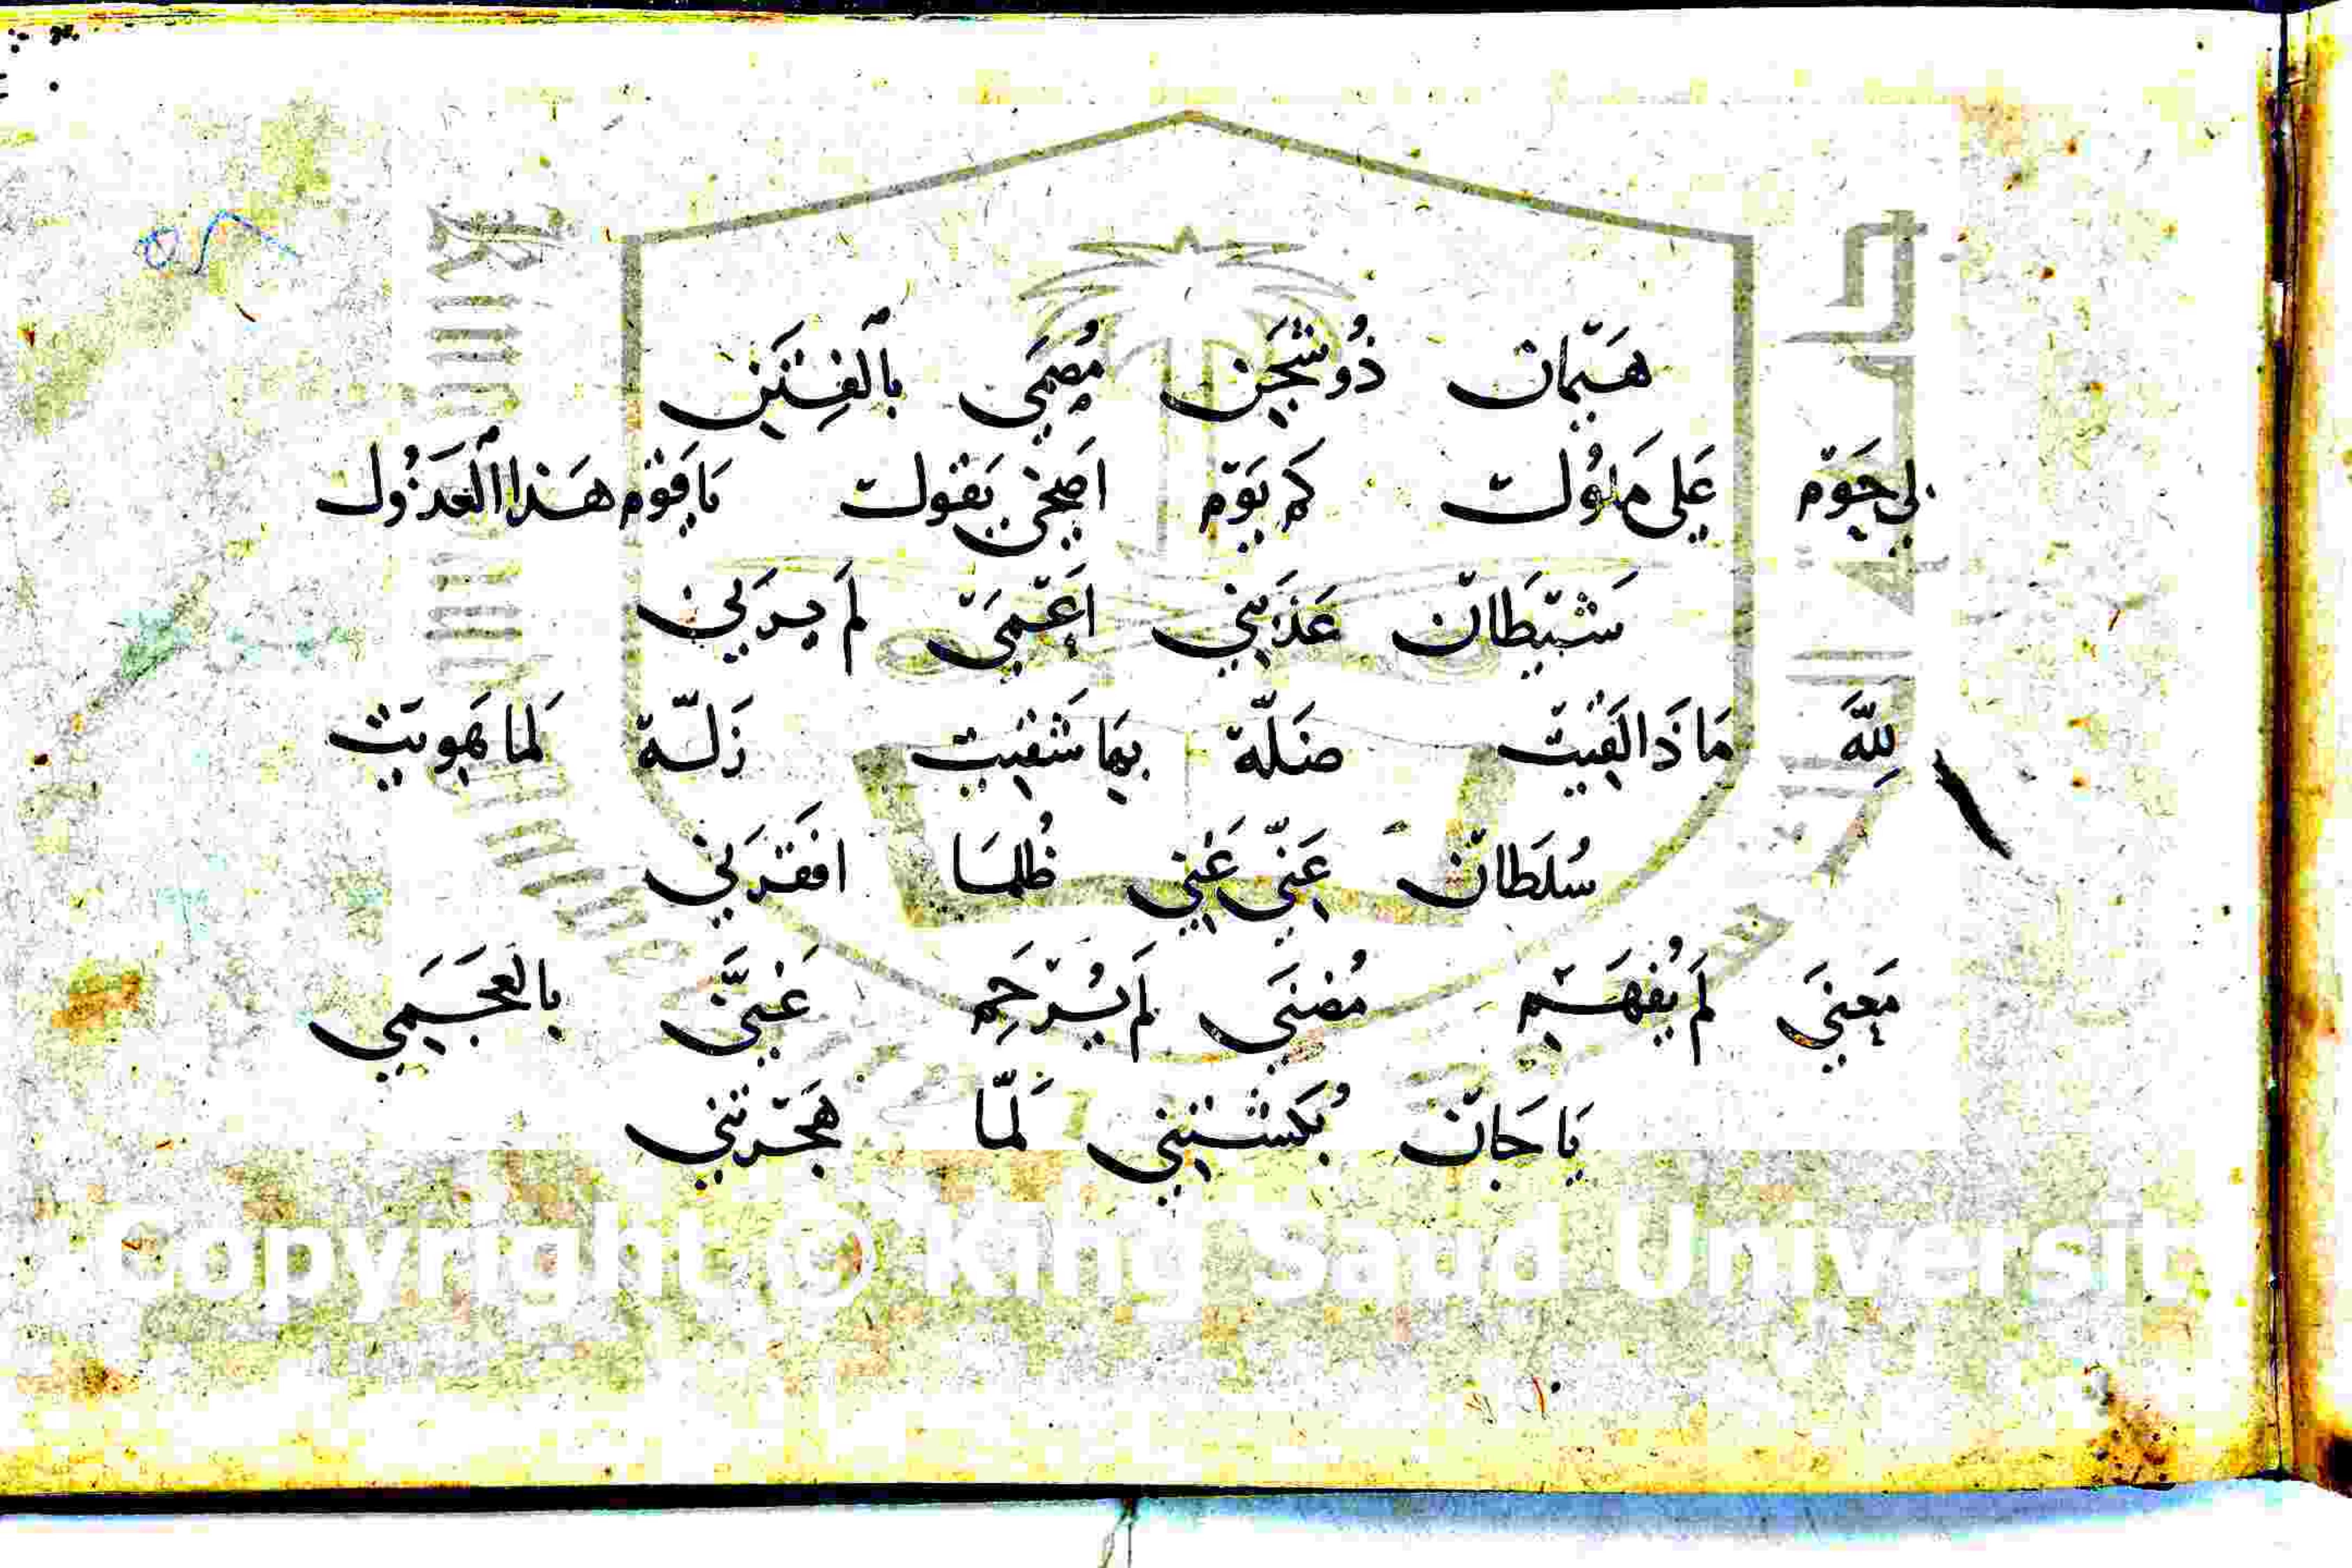 هَيْمَان ذُو شَجَنٍ مُصْمَى بِالْفِتَنِ
لِي حَوْم عَلَى مَلُولْ كَمْ يَوْم اَصِخِي يَقُولْ يَا قَوْم هَذَا الْعَذُولْ
شَيْطَانْ عَذَّبَنِي اَعْمَى لَمْ يَرَنِي
لِلَّهْ مَاذَا لَقِيتْ ضَلَّهْ بِهَا شَقِيتْ زَلَّهْ لَمَا هَوِيتْ
سُلْطَانْ عَنِّي غَنِي ظُلْمًا افْقَرَنِي
مَعْنَى لَمْ يُفْهَمِ مُضْنَى لَمْ يُرْحَمِ غَنَّى بِالْعَجَمِي
يَا جَانْ بُكُشْتَنِي لَمَّا هَجَرْتَنِي
Copyright © King Saud Universit